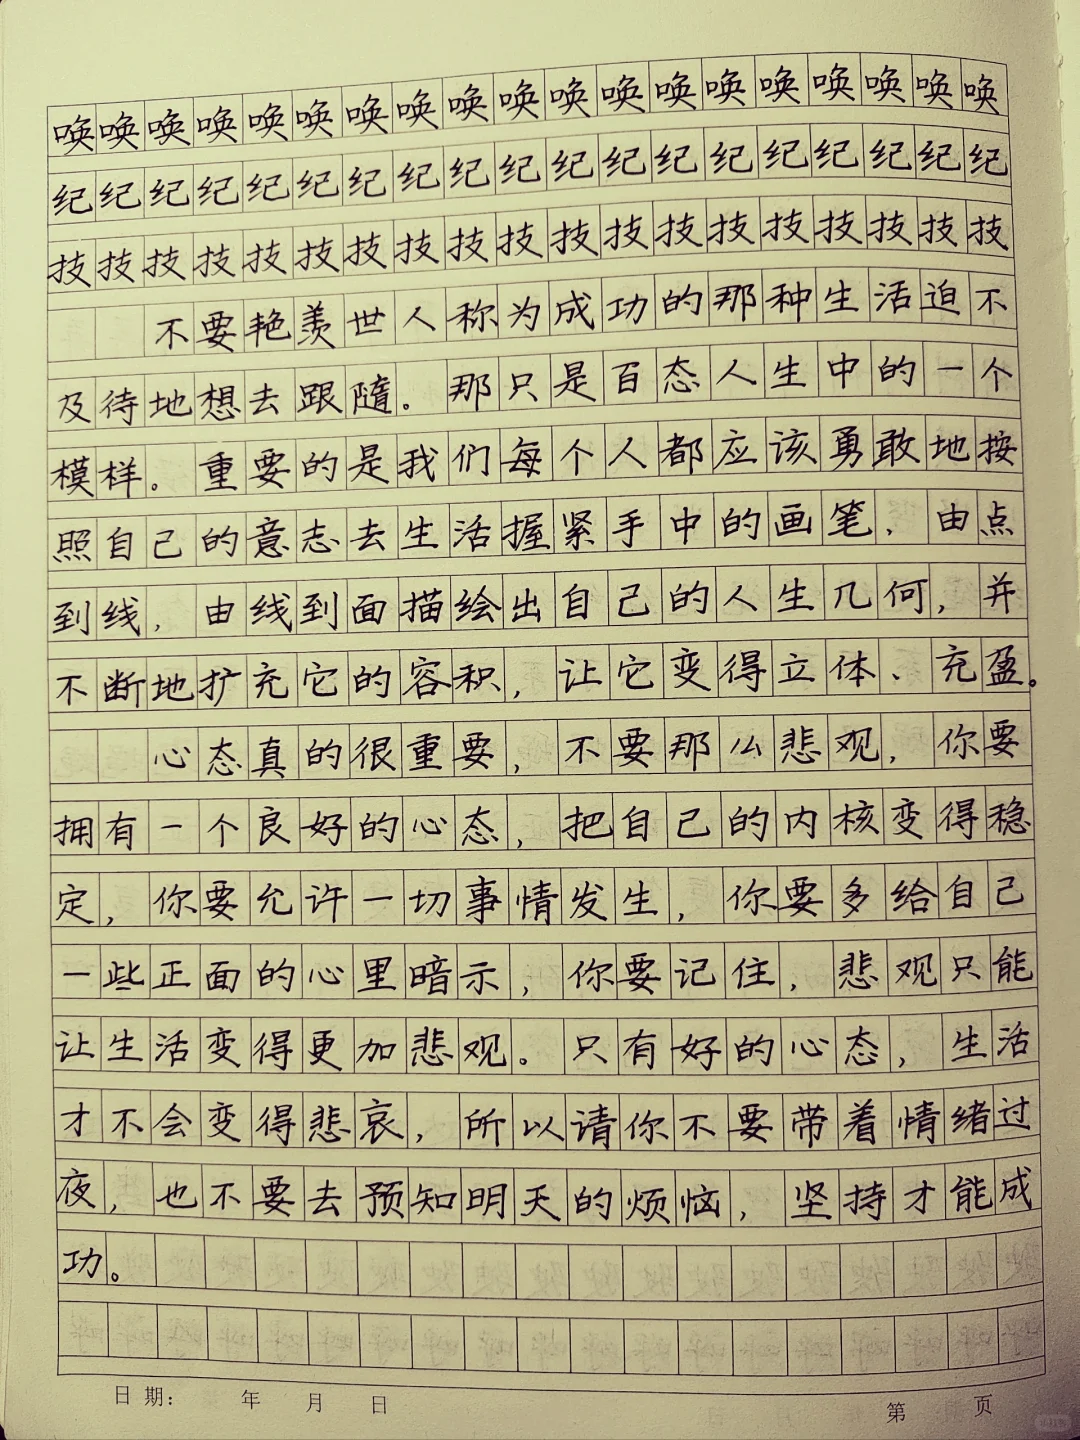 唤唤唤唤唤唤唤唤唤唤唤唤唤唤唤唤唤唤唤
纪纪纪纪纪纪纪纪纪纪纪纪纪纪纪纪纪纪纪
技技技技技技技技技技技技技技技技技技技
不要艳羡世人称为成功的那种生活迫不
及待地想去跟随。那只是百态人生中的一个
模样。重要的是我们每个人都应该勇敢地按
照自己的意志去生活握紧手中的画笔，由点
到线，由线到面描绘出自己的人生几何，并
不断地扩充它的容积，让它变得立体、充盈。
心态真的很重要，不要那么悲观，你要
拥有一个良好的心态，把自己的内核变得稳
定，你要允许一切事情发生，你要多给自己
一些正面的心里暗示，你要记住，悲观只能
让生活变得更加悲观。只有好的心态，生活
才不会变得悲哀，所以请你不要带着情绪过
夜，也不要去预知明天的烦恼，坚持才能成
功。
日期： 年 月 日 第 页